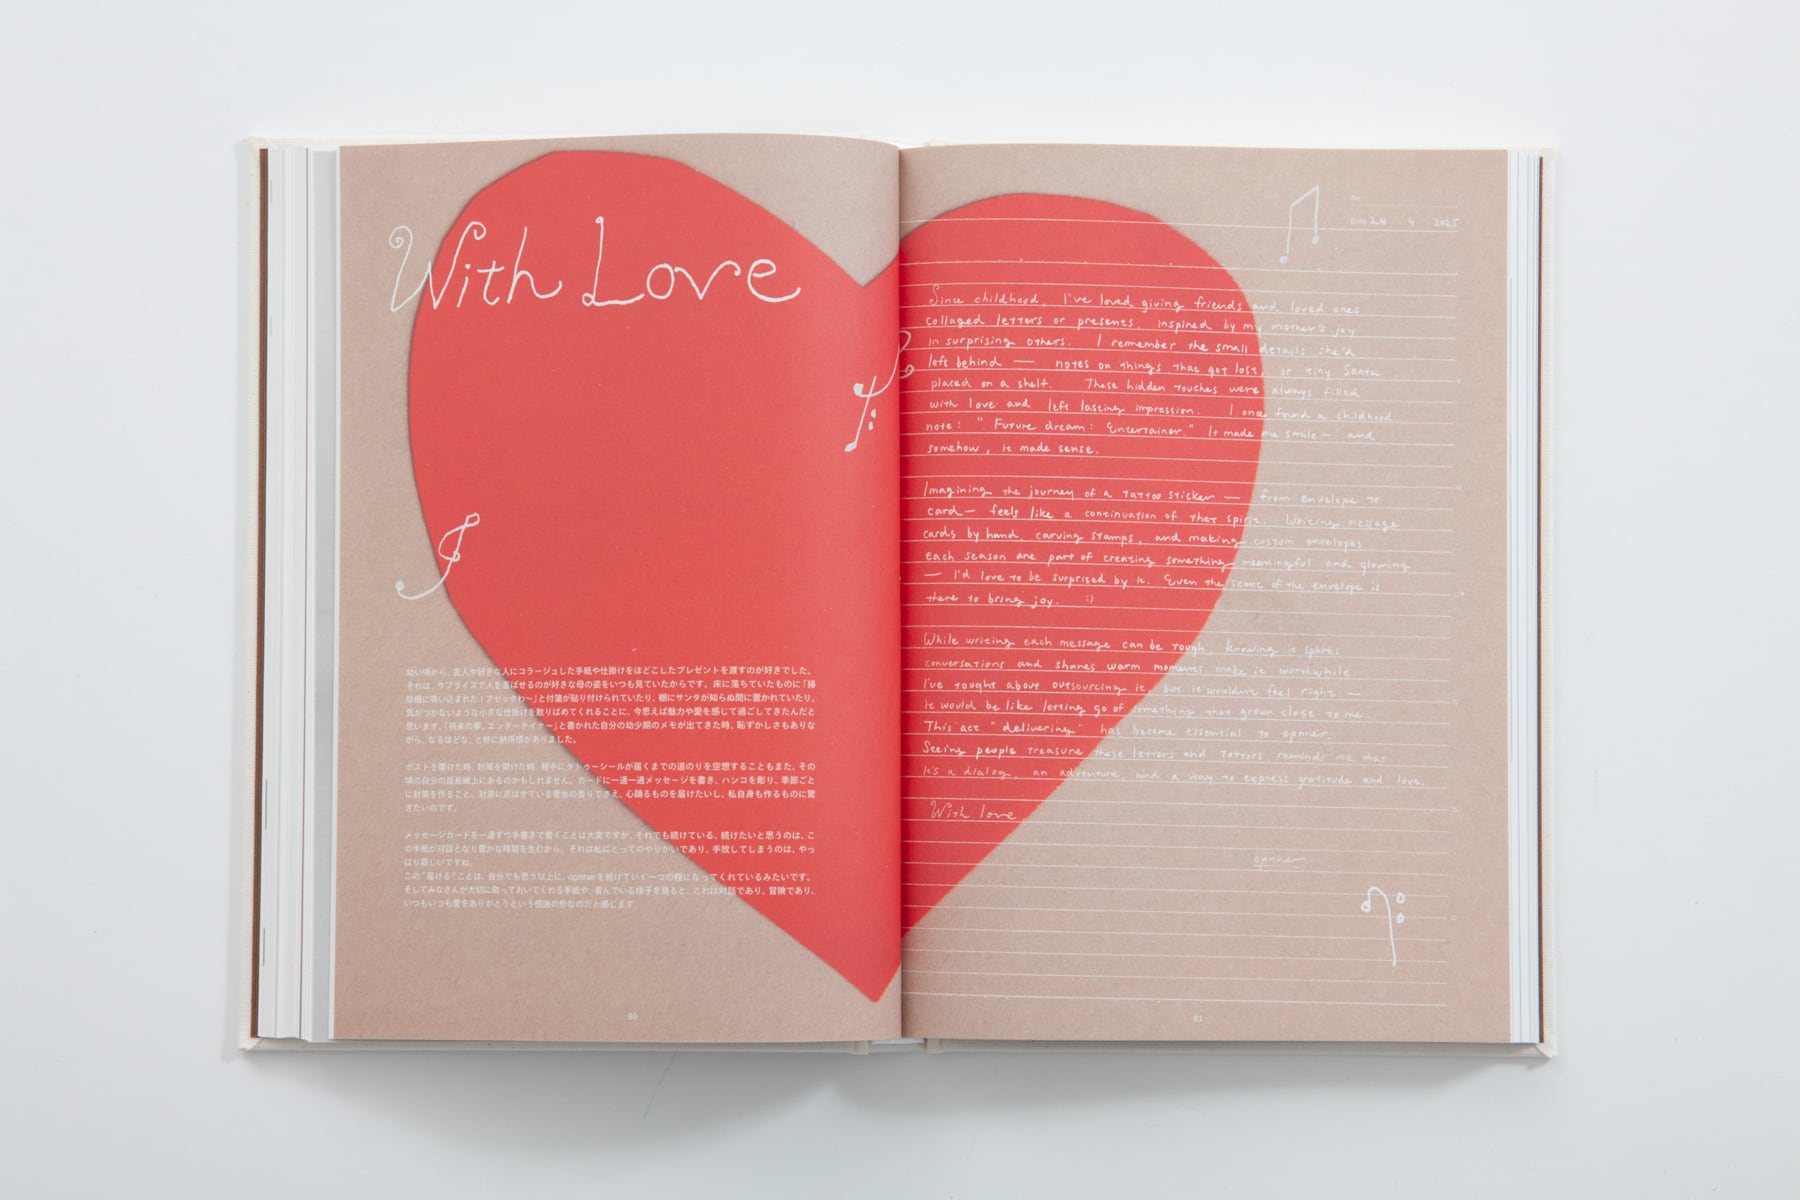 With Love
幼い頃から、友人や好きな人にコラージュした手紙や仕掛けをほどこしたプレゼントを渡すのが好きでした。
それは、サプライズで人を喜ばせるのが好きな母の姿をいつも見ていたからです。床に落ちていたものに「掃
除機に吸い込まれた！アセッタわ〜」と付箋が貼り付けられていたり、棚にサンタが知らぬ間に置かれていたり。
気がつかないような小さな仕掛けを散りばめてくれることに、今思えば魅力や愛を感じて過ごしてきたんだと
思います。「将来の夢、エンターテイナー」と書かれた自分の幼少期のメモが出てきた時、恥ずかしさもありな
がら、なるほどな、と妙に納得感がありました。
ポストを開けた時、封筒を開けた時、相手にタトゥーシールが届くまでの道のりを空想することもまた、その
頃の自分の延長線上にあるのかもしれません。カードに一通一通メッセージを書き、ハンコを彫り、季節ごと
に封筒を作ること、封筒に忍ばせている香水の香りでさえ、心踊るものを届けたいし、私自身も作るものに驚
きたいのです。
メッセージカードを一通ずつ手書きで書くことは大変ですが、それでも続けている、続けたいと思うのは、こ
の手紙が対話となり豊かな時間を生むから。それは私にとってのやりがいであり、手放してしまうのは、やっ
ぱり寂しいですね。
この“届ける”ことは、自分でも思う以上に、opnnerを続けていく一つの糧になってくれているみたいです。
そしてみなさんが大切に取っておいてくれる手紙や、喜んでいる様子を見ると、これは対話であり、冒険であり、
いつもいつも愛をありがとうという感謝の形なのだと感じます。
80
No.
Date 24 . 4 . 2025
Since childhood, I've loved giving friends and loved ones
collaged letters or presents, inspired by my mother's joy
in surprising others. I remember the small details she'd
left behind — notes on things that got lost, or tiny Santa
placed on a shelf. These hidden touches were always filled
with love and left lasting impression. I once found a childhood
note: "Future dream: Entertainer." It made me smile — and
somehow, it made sense.
Imagining the journey of a tattoo sticker — from envelope to
card — feels like a continuation of that spirit. Writing message
cards by hand, carving stamps, and making custom envelopes
each season are part of creating something meaningful and glowing
— I'd love to be surprised by it. Even the scent of the envelope is
there to bring joy. :)
While writing each message can be tough, knowing it sparks
conversations and shares warm moments make it worthwhile.
I've tought about outsourcing it, but it wouldn't feel right —
it would be like letting go of something that grown close to me.
This act "delivering" has become essential to opnner.
Seeing people treasure these letters and tattoos remind me that
it's a dialog, an adventure, and a way to express gratitude and love.
With love,
opnner
81